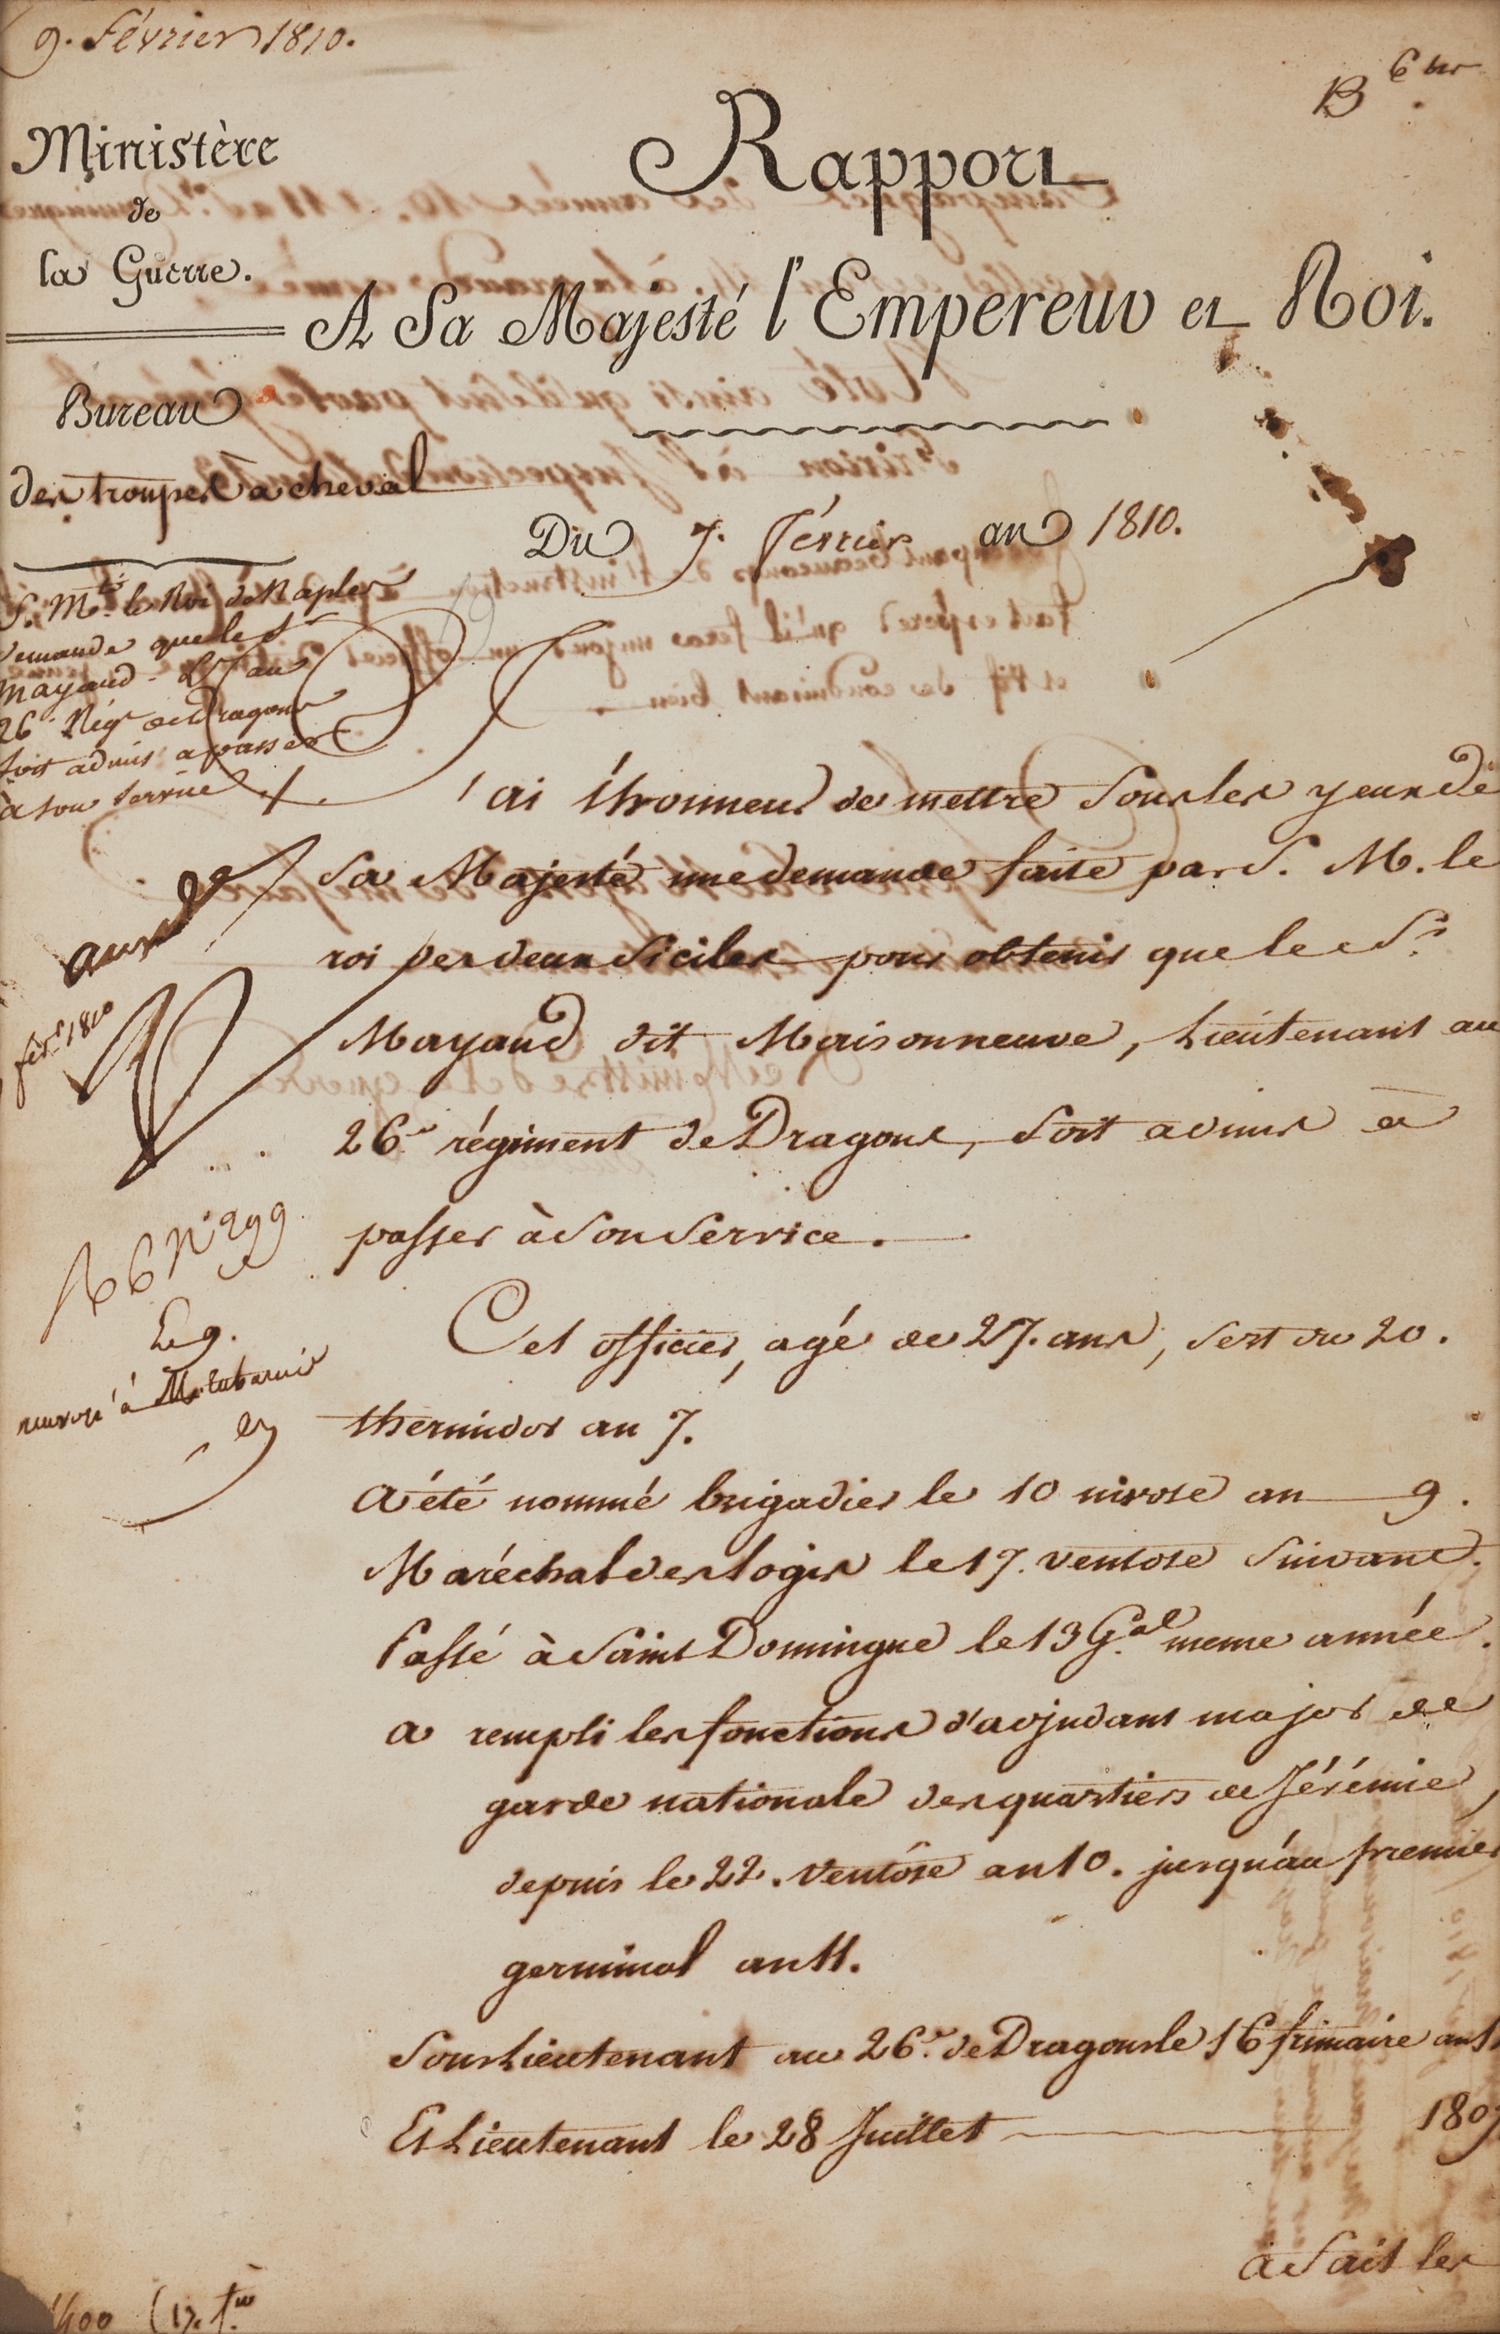 9. Février 1810.
B 6 ter.
Ministère
de
la Guerre.
Rapport
A Sa Majesté l'Empereur et Roi.
Bureau
des troupes à cheval
Du 7. Février an 1810.
S. Mté. le Roi de Naples
demande que le Sr
Mayaud. Lt au
26e Régt de Dragons
soit admis a passer
à son service
J'ai l'honneur de mettre sous les yeux de
Sa Majesté une demande faite par S. M. le
roi des deux Siciles pour obtenir que le Sr.
Mayaud dit Maisonneuve, Lieutenant au
26e régiment de Dragons, soit admis à
passer à son service.
accordé
févr. 1810
N° 299
Le 9.
renvoyé à
Cet officier, agé de 27. ans, sert du 20.
thermidor an 7.
A été nommé brigadier le 10 nivose an 9.
Maréchal des logis le 17. ventose suivant.
Passé à Saint Domingue le 13 Gal. meme année.
a rempli les fonctions d'adjudant major de
garde nationale des quartiers de Jérémie,
depuis le 22. Ventôse an 10. jusqu'au premier
germinal an 11.
Sous Lieutenant au 26e. de Dragons le 16 frimaire an
Et Lieutenant le 28 Juillet 1807
a fait les
1400